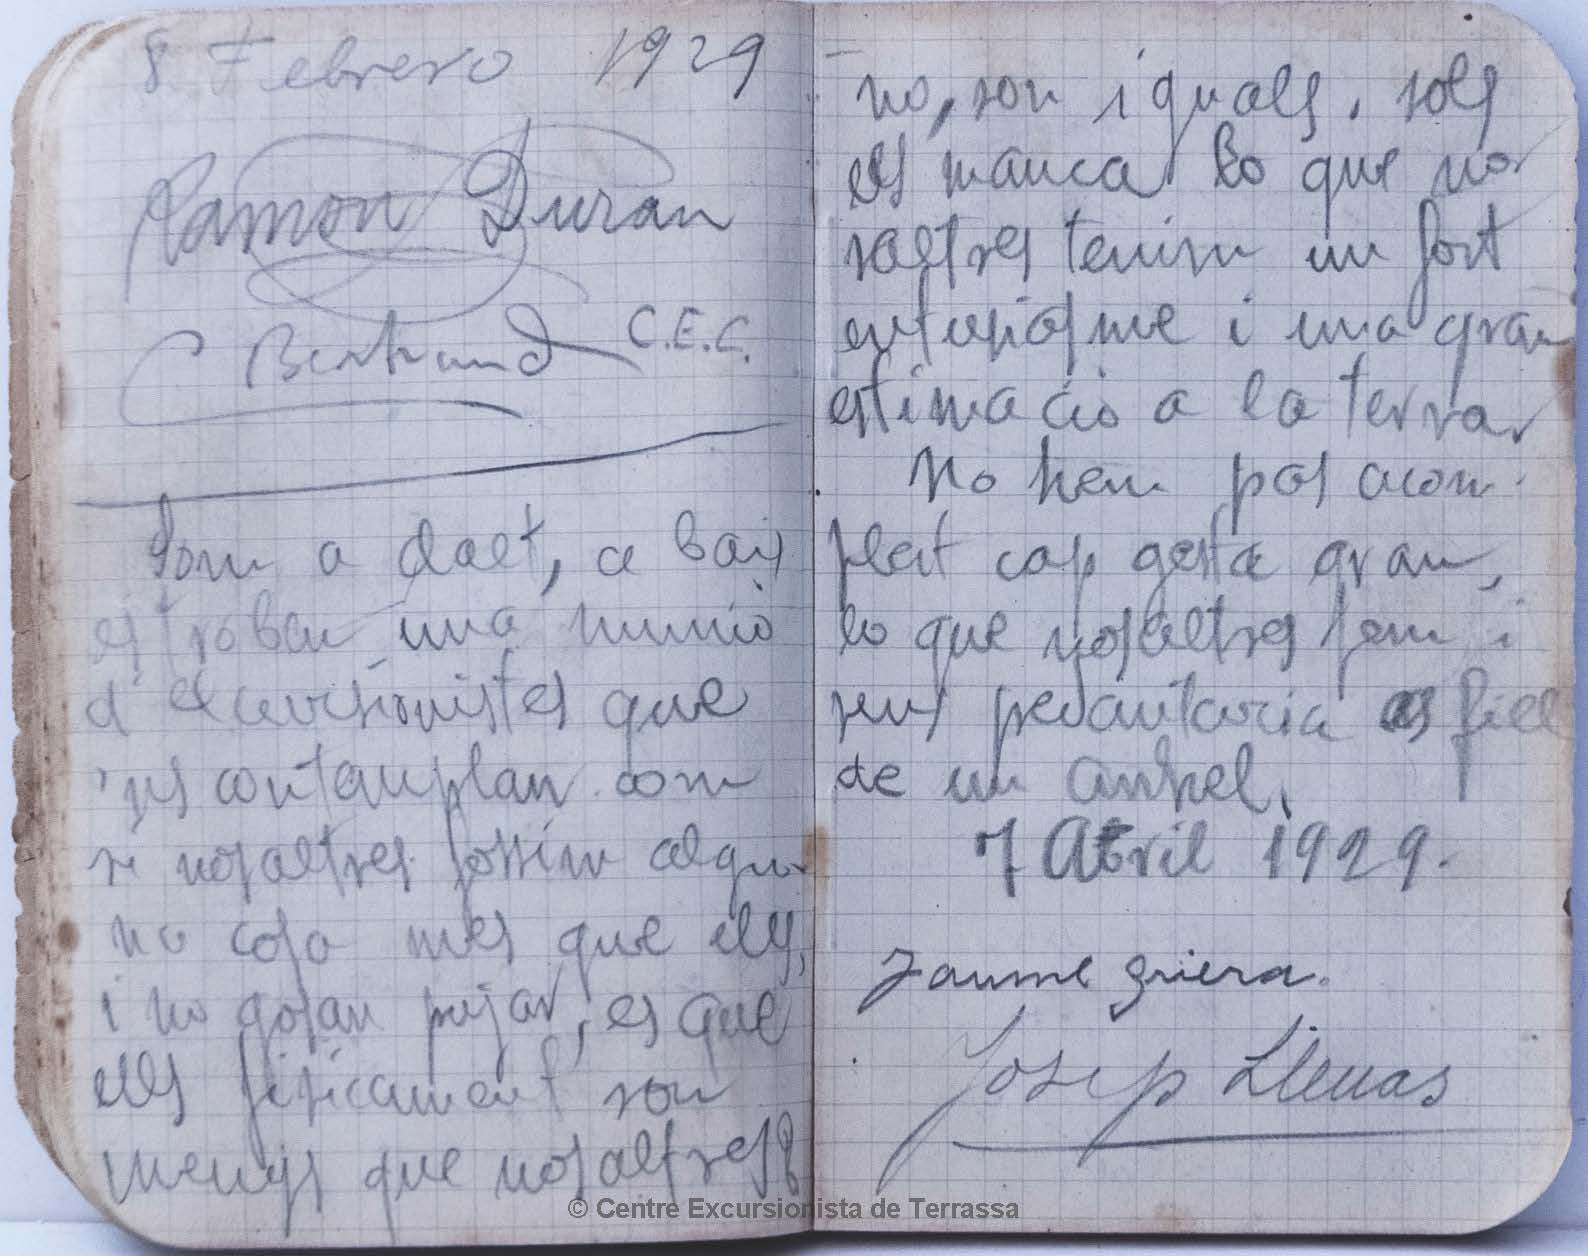 8 Febrero 1929
Ramon Duran
C Bertrand C.E.C.
Som a dalt, a baix
es troban una munió
d'excursionistes que
'ns contemplan com
si nosaltres fossim algu-
na cosa mes que ells,
i no gosan pujar, es que
ells fisicament son
menys que nosaltres?
no, son iguals, sols
els manca lo que no-
saltres tenim un fort
entusiasme i una gran
estimacio a la terra.
No hem pas acom-
plert cap gesta gran,
lo que nosaltres fem i
sens pedanteria es fill
de un anhel.
7 Abril 1929.
Jaume Griera.
Josep Llenas
© Centre Excursionista de Terrassa